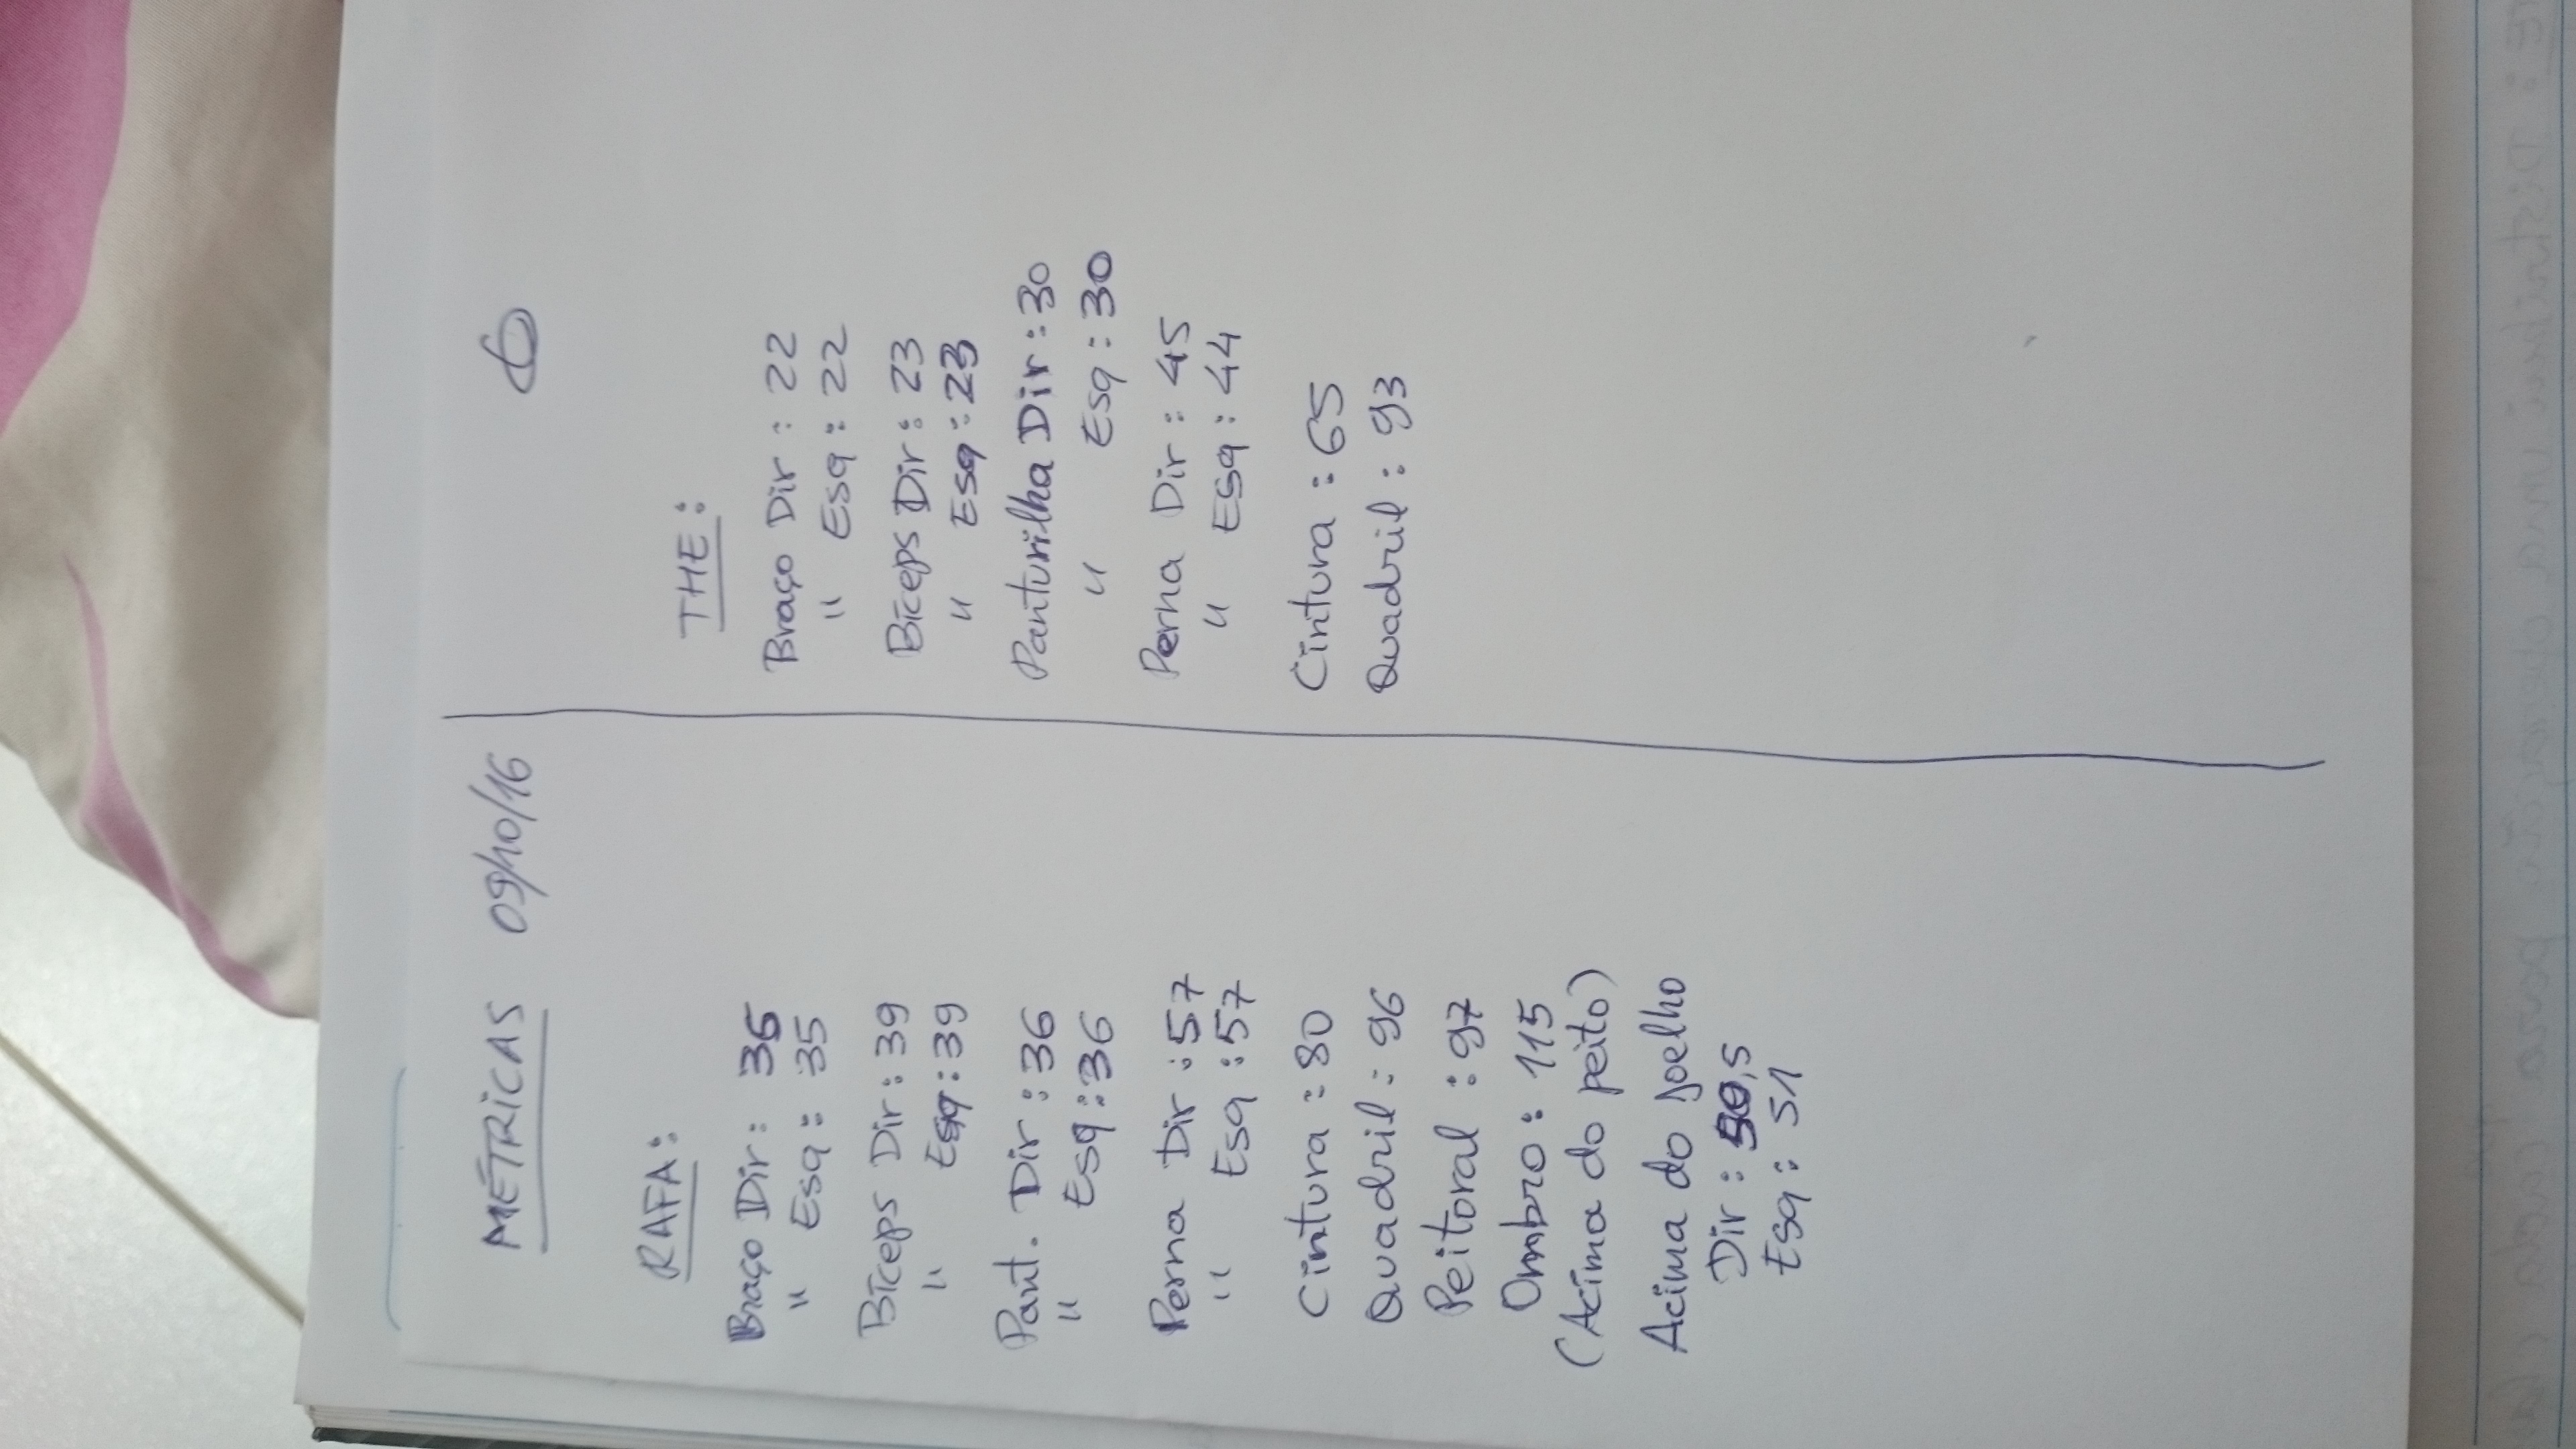 MÉTRICAS 09/10/16
6
RAFA:
Braço Dir: 35
" Esq: 35
Bíceps Dir: 39
" Esq: 39
Pant. Dir: 36
" Esq: 36
Perna Dir: 57
" Esq: 57
Cintura: 80
Quadril: 96
Peitoral: 97
Ombro: 115
(Acima do peito)
Acima do Joelho
Dir: 50,5
Esq: 51
THE:
Braço Dir: 22
" Esq: 22
Bíceps Dir: 23
" Esq: 23
Panturilha Dir: 30
" Esq: 30
Perna Dir: 45
" Esq: 44
Cintura: 65
Quadril: 93